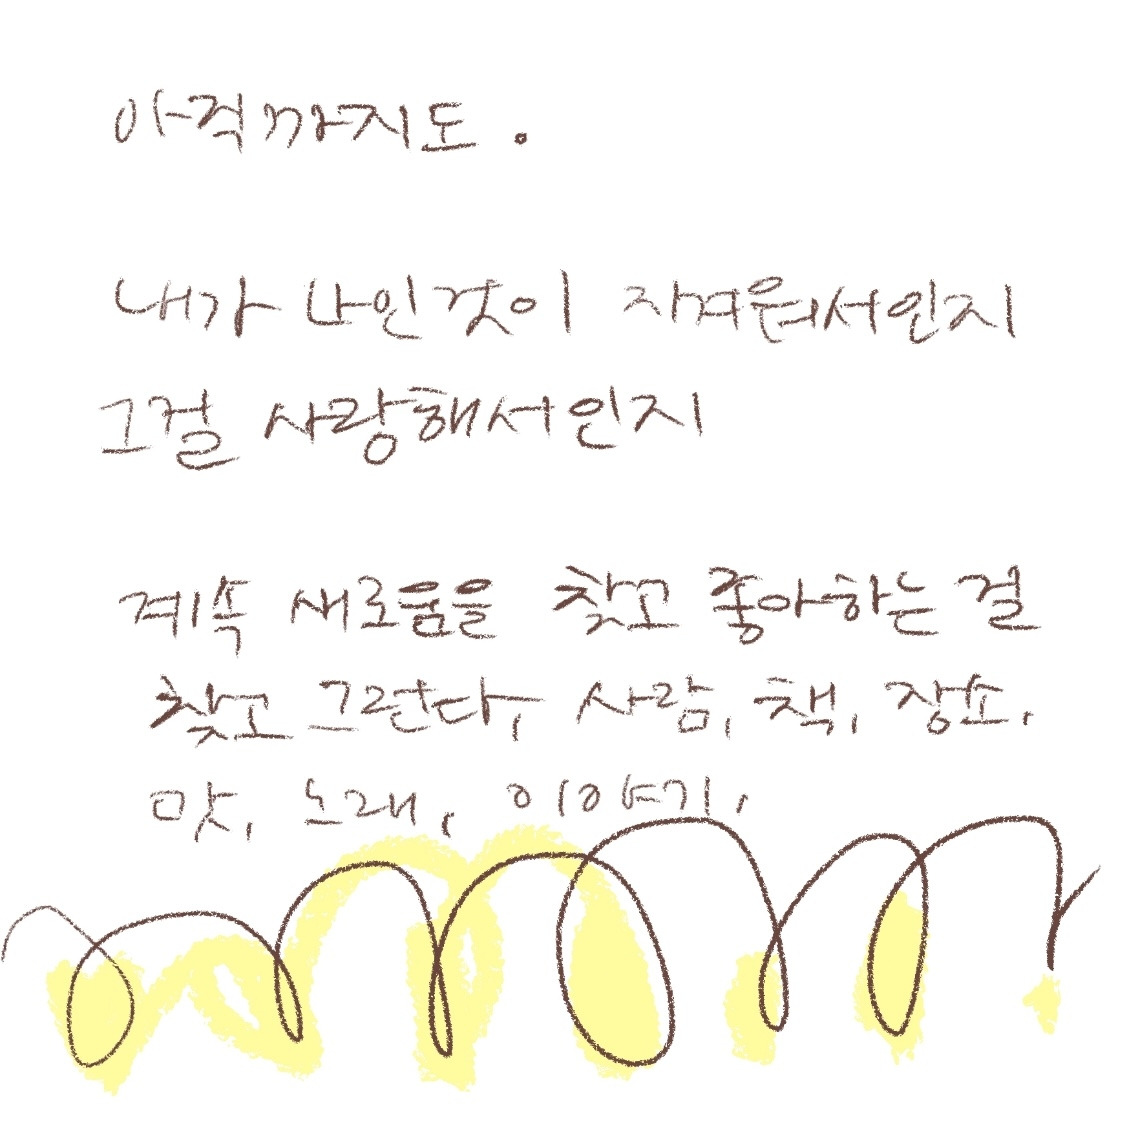 아직까지도.
내가 나인것이 지겨워서인지
그걸 사랑해서인지
계속 새로움을 찾고 좋아하는 걸
찾고 그런다, 사람, 책, 장소,
맛, 노래, 이야기,